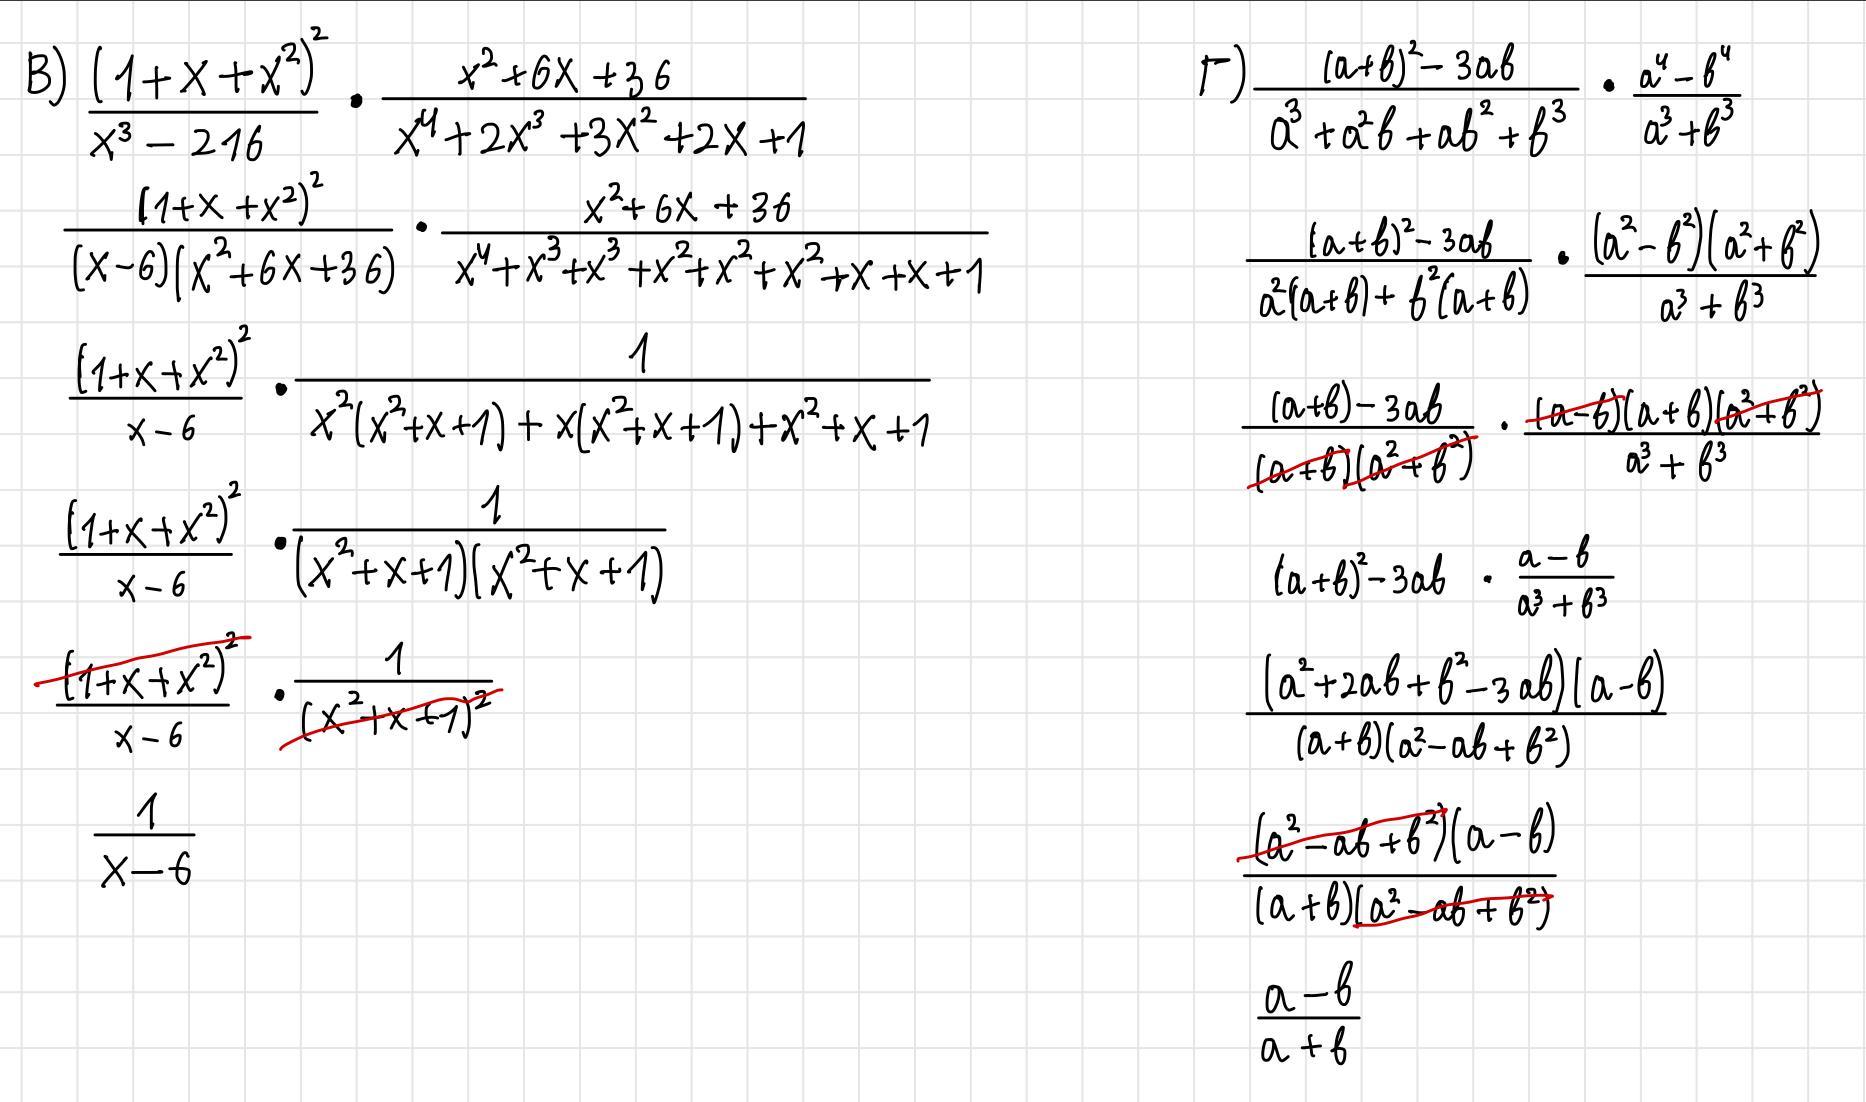 В) (1+x+x²)²/(x³-216) · (x²+6x+36)/(x⁴+2x³+3x²+2x+1)
(1+x+x²)²/((x-6)(x²+6x+36)) · (x²+6x+36)/(x⁴+x³+x³+x²+x²+x²+x+x+1)
(1+x+x²)²/(x-6) · 1/(x²(x²+x+1)+x(x²+x+1)+x²+x+1)
(1+x+x²)²/(x-6) · 1/((x²+x+1)(x²+x+1))
(1+x+x²)²/(x-6) · 1/(x²+x+1)²
1/(x-6)
Г) ((a+b)²-3ab)/(a³+a²b+ab²+b³) · (a⁴-b⁴)/(a³+b³)
((a+b)²-3ab)/(a²(a+b)+b²(a+b)) · ((a²-b²)(a²+b²))/(a³+b³)
((a+b)-3ab)/((a+b)(a²+b²)) · ((a-b)(a+b)(a²+b²))/(a³+b³)
(a+b)²-3ab · (a-b)/(a³+b³)
((a²+2ab+b²-3ab)(a-b))/((a+b)(a²-ab+b²))
((a²-ab+b²)(a-b))/((a+b)(a²-ab+b²))
(a-b)/(a+b)